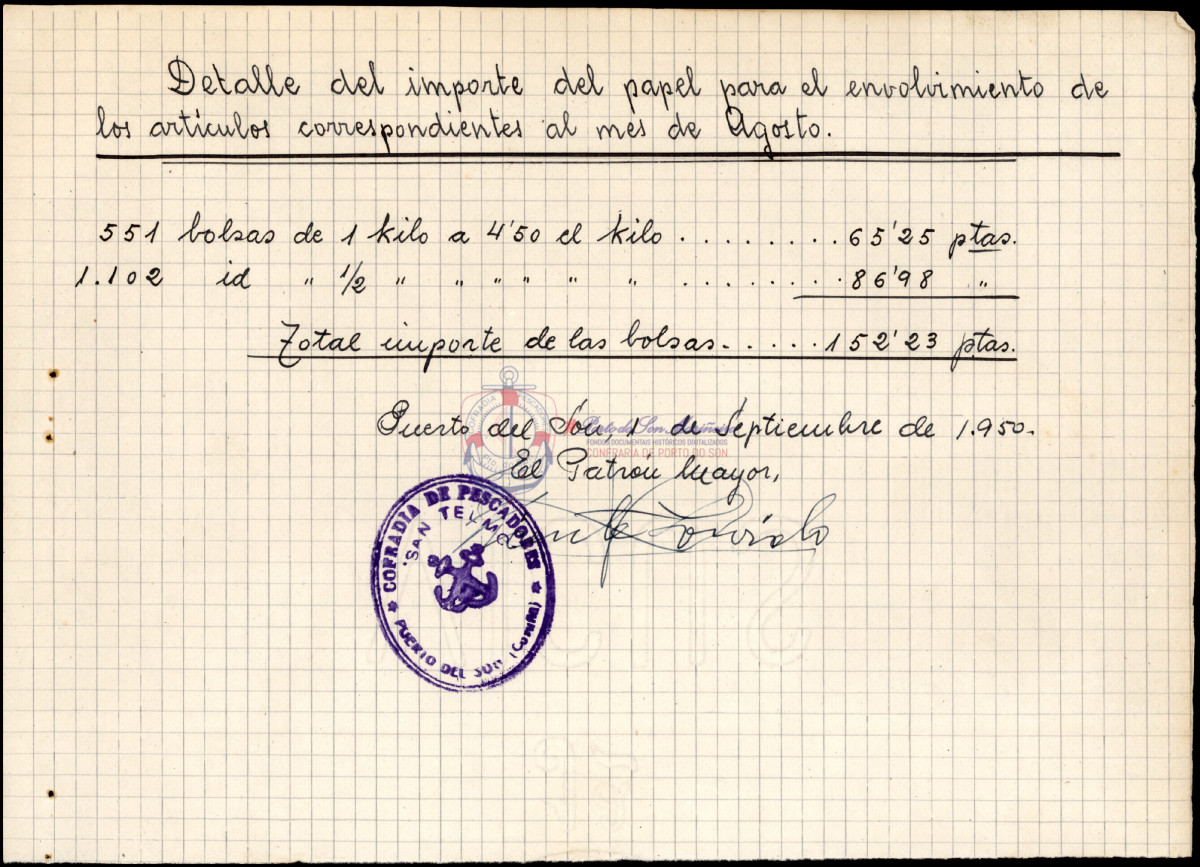 Detalle del importe del papel para el envolvimiento de
los artículos correspondientes al mes de Agosto.
551 bolsas de 1 kilo a 4'50 el kilo . . . . . . . . 65'25 ptas.
1.102 id " 1/2 " " " " " . . . . . . . . 86'98 "
Total importe de las bolsas. . . . . . 152'23 ptas.
Puerto del Son, 1 de Septiembre de 1.950.
El Patrón Mayor,
COFRADIA DE PESCADORES
"SAN TELMO"
PUERTO DEL SON (CORUÑA)
COFRADIA PESCADORES
Porto do Son
FONDOS DOCUMENTAIS HISTÓRICOS DIXITALIZADOS
CONFRARIA DE PORTO DO SON